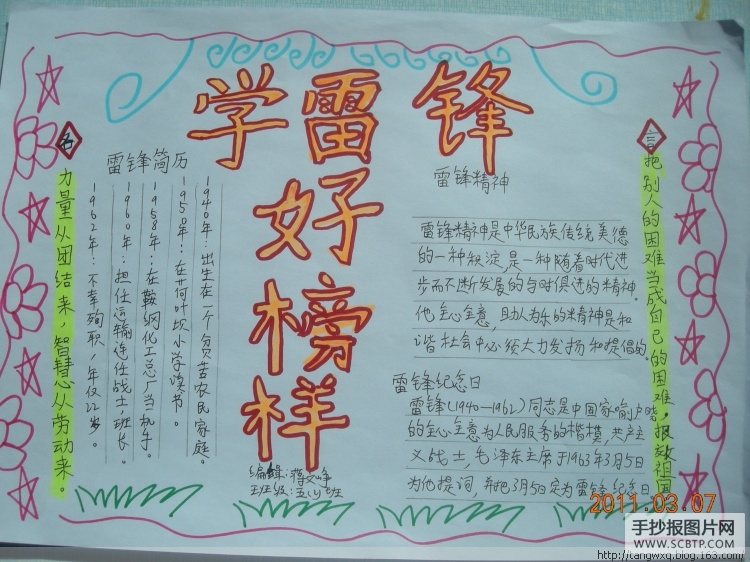 学雷锋
好榜样
名
力量从团结来，智慧从劳动来。
雷锋简历
1940年：出生在一个贫苦农民家庭。
1950年：在荷叶坝小学读书。
1958年：在鞍钢化工总厂当机手。
1960年：担任运输连任战士，班长。
1962年：不幸殉职，年仅22岁。
编辑：
班级：五(1)班
雷锋精神
雷锋精神是中华民族传统美德
的一种积淀是一种随着时代进
步而不断发展的与时俱进的精神。
他全心全意，助人为乐的精神是和
谐社会中必须大力发扬和提倡的。
雷锋纪念日
雷锋(1940—1962)同志是中国家喻户晓
的全心全意为人民服务的楷模，共产主
义战士，毛泽东主席于1963年3月5日
为他提词，并把3月5日定为雷锋纪念日
言
把别人的困难当成自己的困难，报效祖国
2011.03.07
手抄报图片网
WWW.SCBTP.COM
http://tangwxq.blog.163.com